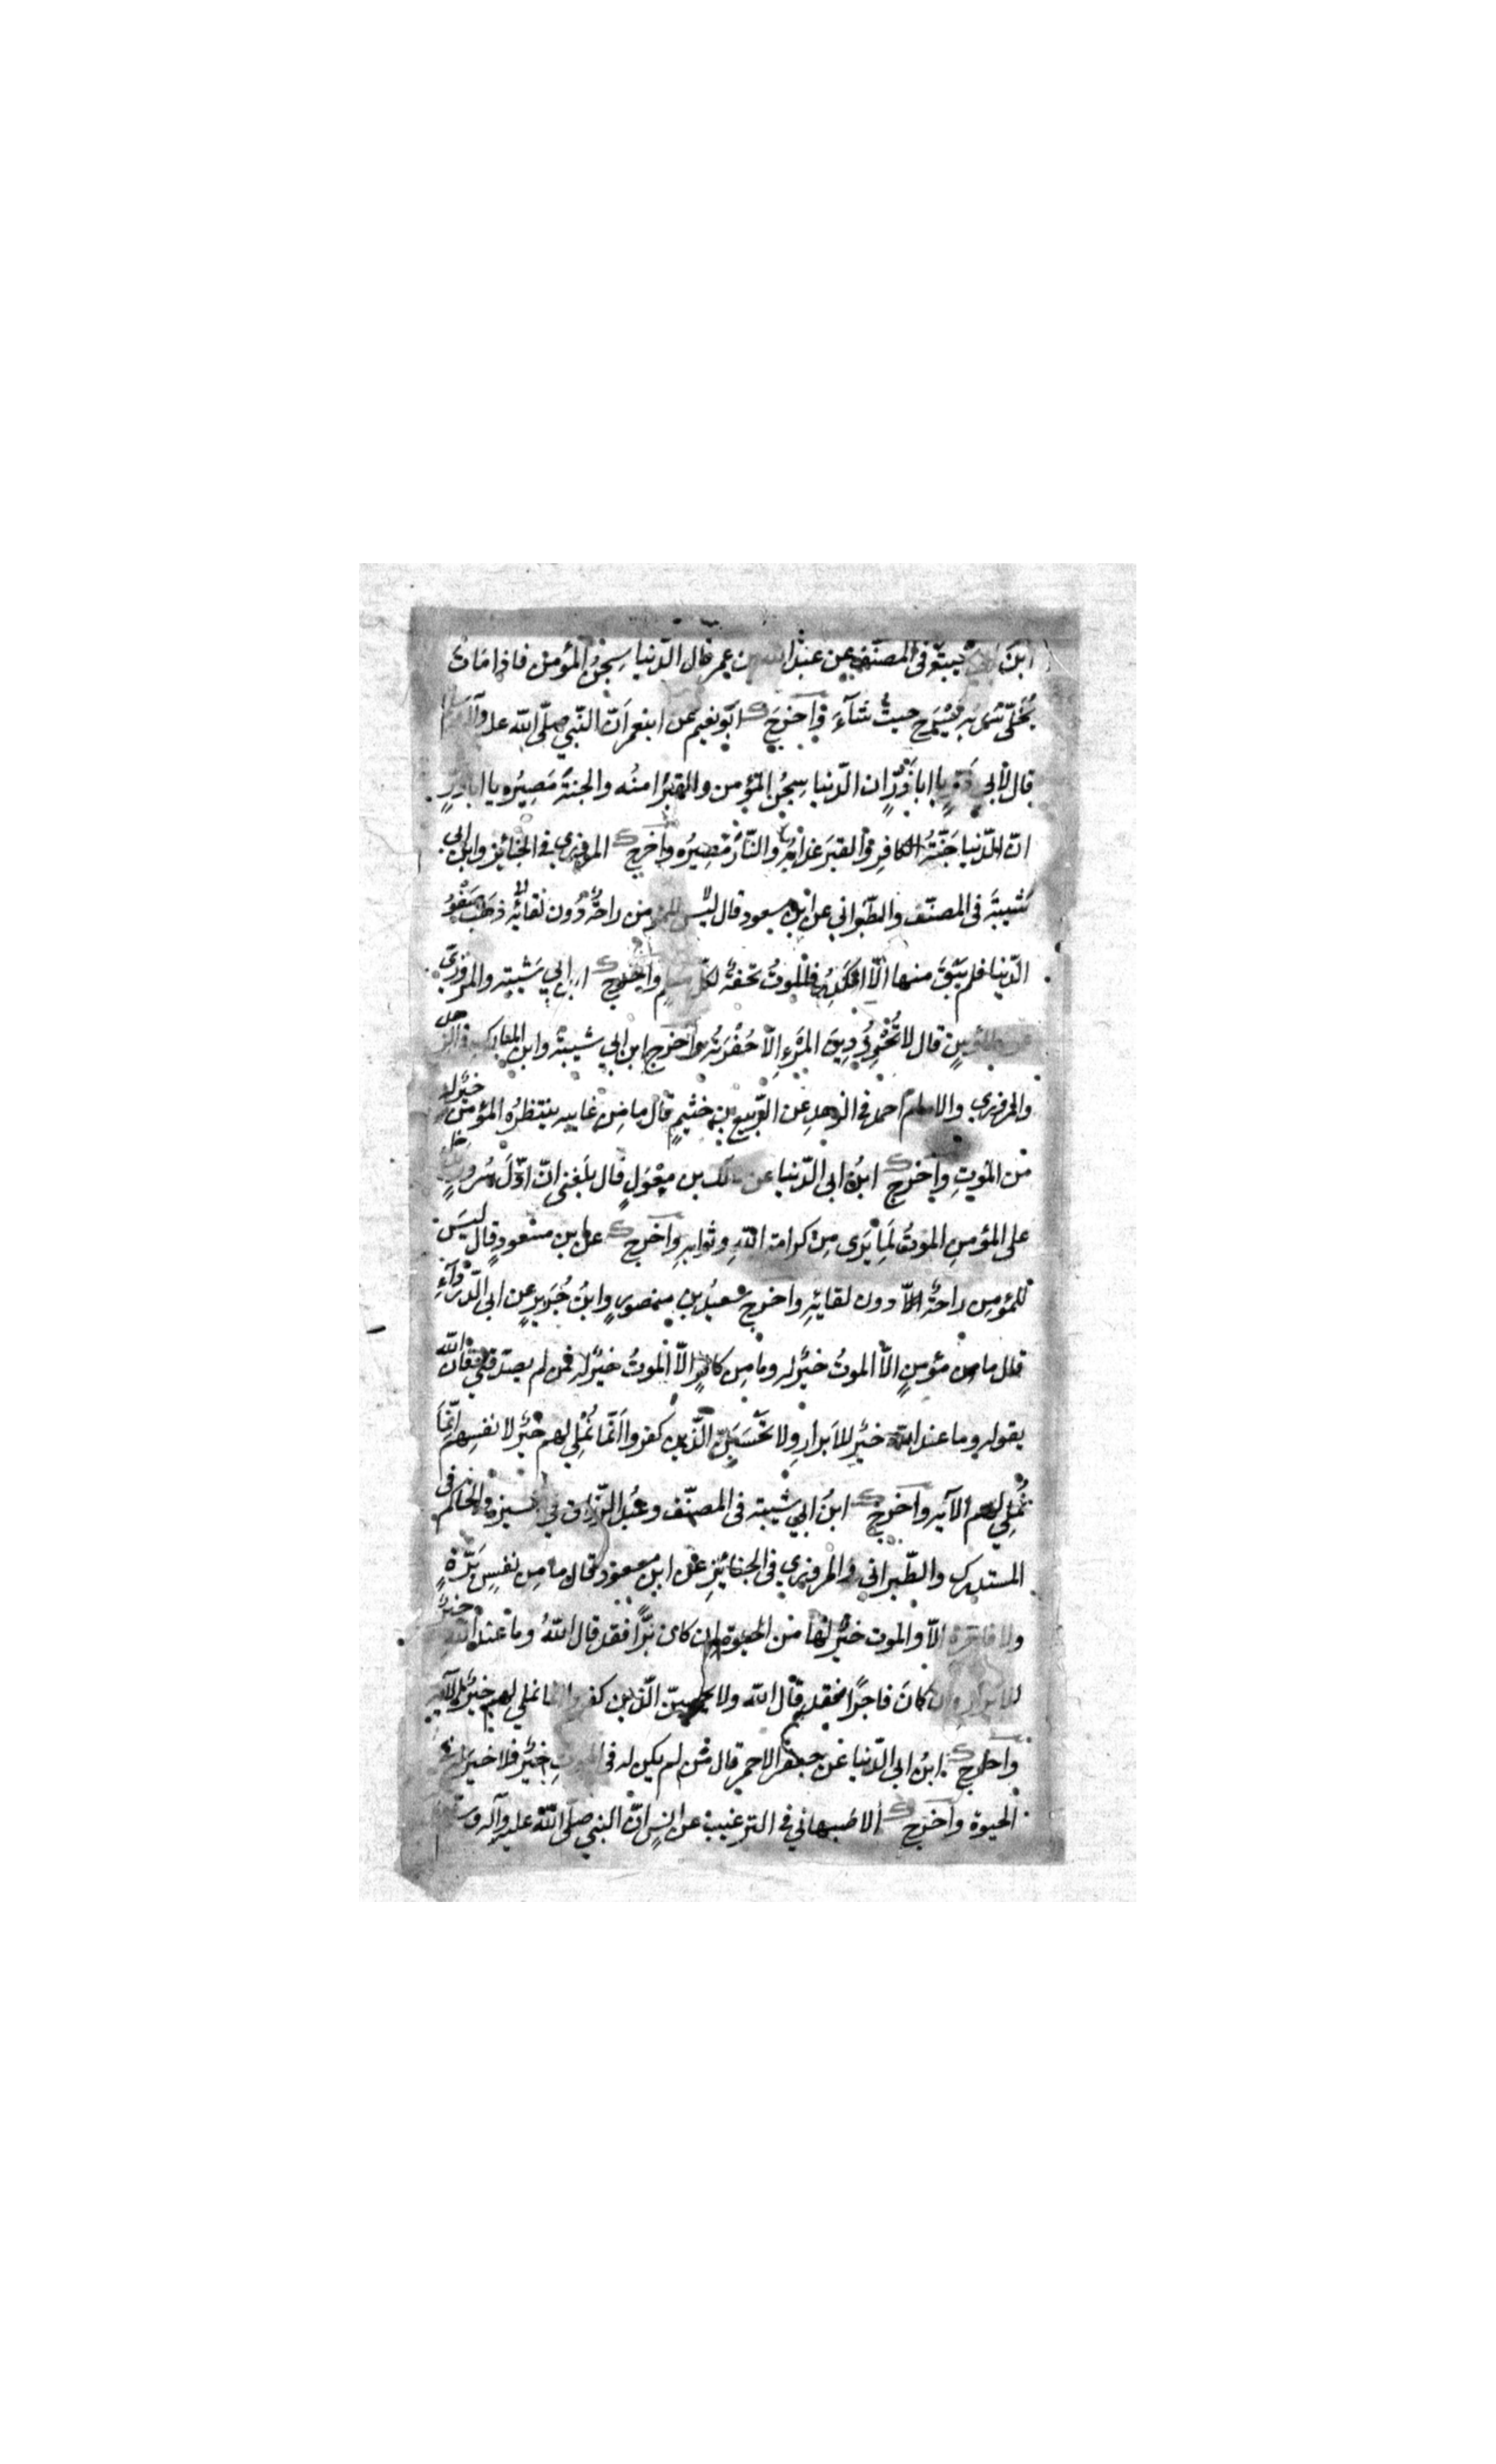 ابن ابي شيبة فى المصنّف عن عبد الله بن عمر قال الدّنيا سِجنُ المؤمن فاذا مات
يُخَلّى سَرْبُه يَسْرَح حيثُ شَآءَ وَاَخرَجَ ابو نعيم عن ابنعمر اَنّ النّبي صلّى الله عليه وآله وسلم
قال لأبي ذرّ يا ابا ذَرٍّ ان الدّنيا سِجْنُ المؤمن والقبرُ امنُه والجنةُ مَصِيرُه يا ابا ذرٍّ
انّ الدّنيا جَنّةُ الكافرِ والقبرَ عذابُه والنّارُ مَصِيرُه واَخرج المروزي في الجنائز وابن ابي
شيبةَ فى المصنّف والطّبراني عن ابن مسعود قال ليس للمؤمن راحةٌ دُون لقائه ذهَبَ صَفْوُ
الدّنيا فلم يَبْقَ منها الّا فالموتُ تحفةٌ لكلّ مسلم واخرج ابن ابي شَيْبة والمروزيّ
قال لا تُحْرِزُ دِينَ المَرْءِ اِلّا حُفْرَتُه واَخرج ابن ابي شيبةَ وابن المبارك في الزهد
والمروزي والامام احمد في الزهد عن الرّبيع بن خثيمٍ قال ما مِن غايبٍ ينتظرُه المؤمن خيرٌ له
مّن الموْتِ واَخرج ابنُ ابى الدّنيا عن مالك بن مِغْوَلٍ قال بلغني انّ اوّلَ سُرورٍ يدخل
على المؤمنِ الموتُ لَمِا يَرى مِن كرامة اللهِ وثوابه واَخرج عن ابن مسعودٍ قال ليسَ
للمؤمِن راحةٌ الّا دون لقائِه واخرج سعيدُ بن منصورٍ وابنُ جُريرٍ عن ابى الدّردآءِ
قال ما من مؤمنٍ الاّ الموتُ خيرٌ له وما مِن كافرٍ الاّ الموتُ خيرٌ له فمن لم يصدّقني فان الله
يقول وما عند الله خيرٌ للاَبرارِ ولا تَحْسَبَنّ الّذين كفروا اَنّما نُمْلِي لهم خيرٌ لانفسِهم اِنّما
نُملِي لهم الآيه واَخرج ابنُ ابي شيبة فى المصنّف وعَبْد الرّزاق في تفسيره والحاكم فى
المستدرك والطّبراني والمروزي فى الجنائِز عن ابن مسعود قال ما مِن نفسٍ بَرّةٍ
ولا فاجرة الاّ والموت خيرٌ لها من الحيوة اِن كان بَرًّا فقد قال اللهُ وما عند الله خيرٌ
للابرارِ وان كانَ فاجرًا فقد قال الله ولا يحسبنّ الّذين كفروا انما نملي لهم خيرٌ الآيه
واَخرج ابنُ ابى الدّنيا عن جعفر الاحمر قال مَن لم يكن له فى الموتِ خيرٌ فلا خيرَ له في
الحيوة واَخرج الاصبهاني في الترغيب عن انسٍ انّ النبي صلّى اللهُ عليه وآله وسلم